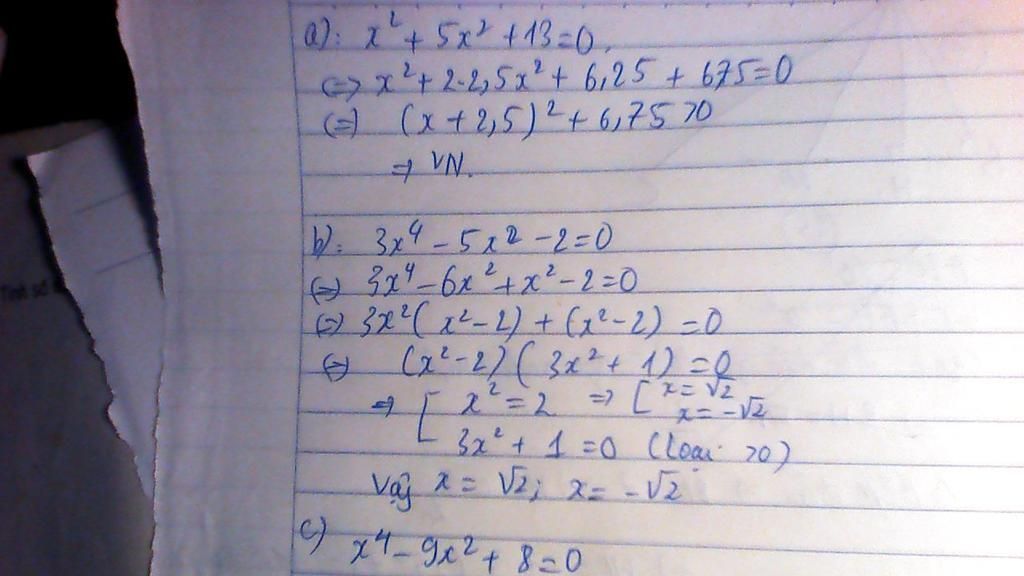 a): x² + 5x² + 13 = 0.
(=) x² + 2.2,5x² + 6,25 + 6,75 = 0
(=) (x + 2,5)² + 6,75 > 0
=> VN.
b): 3x⁴ - 5x² - 2 = 0
(=) 3x⁴ - 6x² + x² - 2 = 0
(=) 3x² (x² - 2) + (x² - 2) = 0
(=) (x² - 2) (3x² + 1) = 0
=> [ x² = 2 => [ x = √2
x = -√2
3x² + 1 = 0 (loại >0)
Vậy x = √2; x = -√2
c) x⁴ - 9x² + 8 = 0